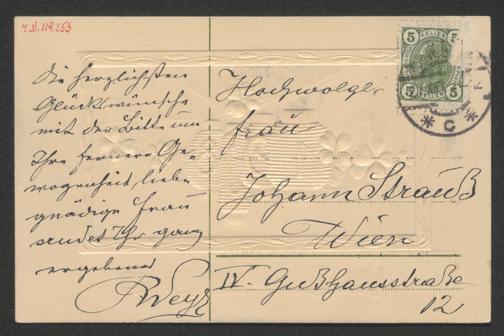 I.N. 119.253
Die herzlichsten
Glückwünsche
mit der Bitte um
Ihre fernere Ge-
wogenheit, liebe
gnädige Frau
sendet Ihr ganz
ergebener
RWeyr
Hochwolge.
Frau
Johann Strauß
Wien
IV. Gußhausstraße
12
5 HELLER 5
5 5
* C *